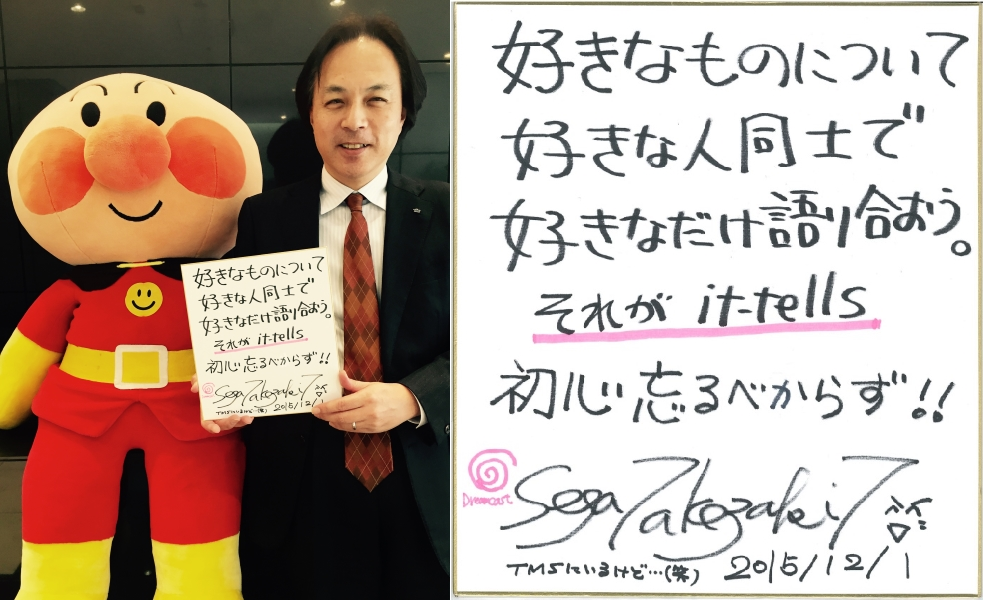 好きなものについて
好きな人同士で
好きなだけ語り合おう。
それが it-tells
初心忘るべからず!!
Sega Takezaki
TMSにいるけど…(笑)
2015/12/1
好きなものについて
好きな人同士で
好きなだけ語り合おう。
それが it-tells
初心忘るべからず!!
Dreamcast
Sega Takezaki
TMSにいるけど…(笑) 2015/12/1